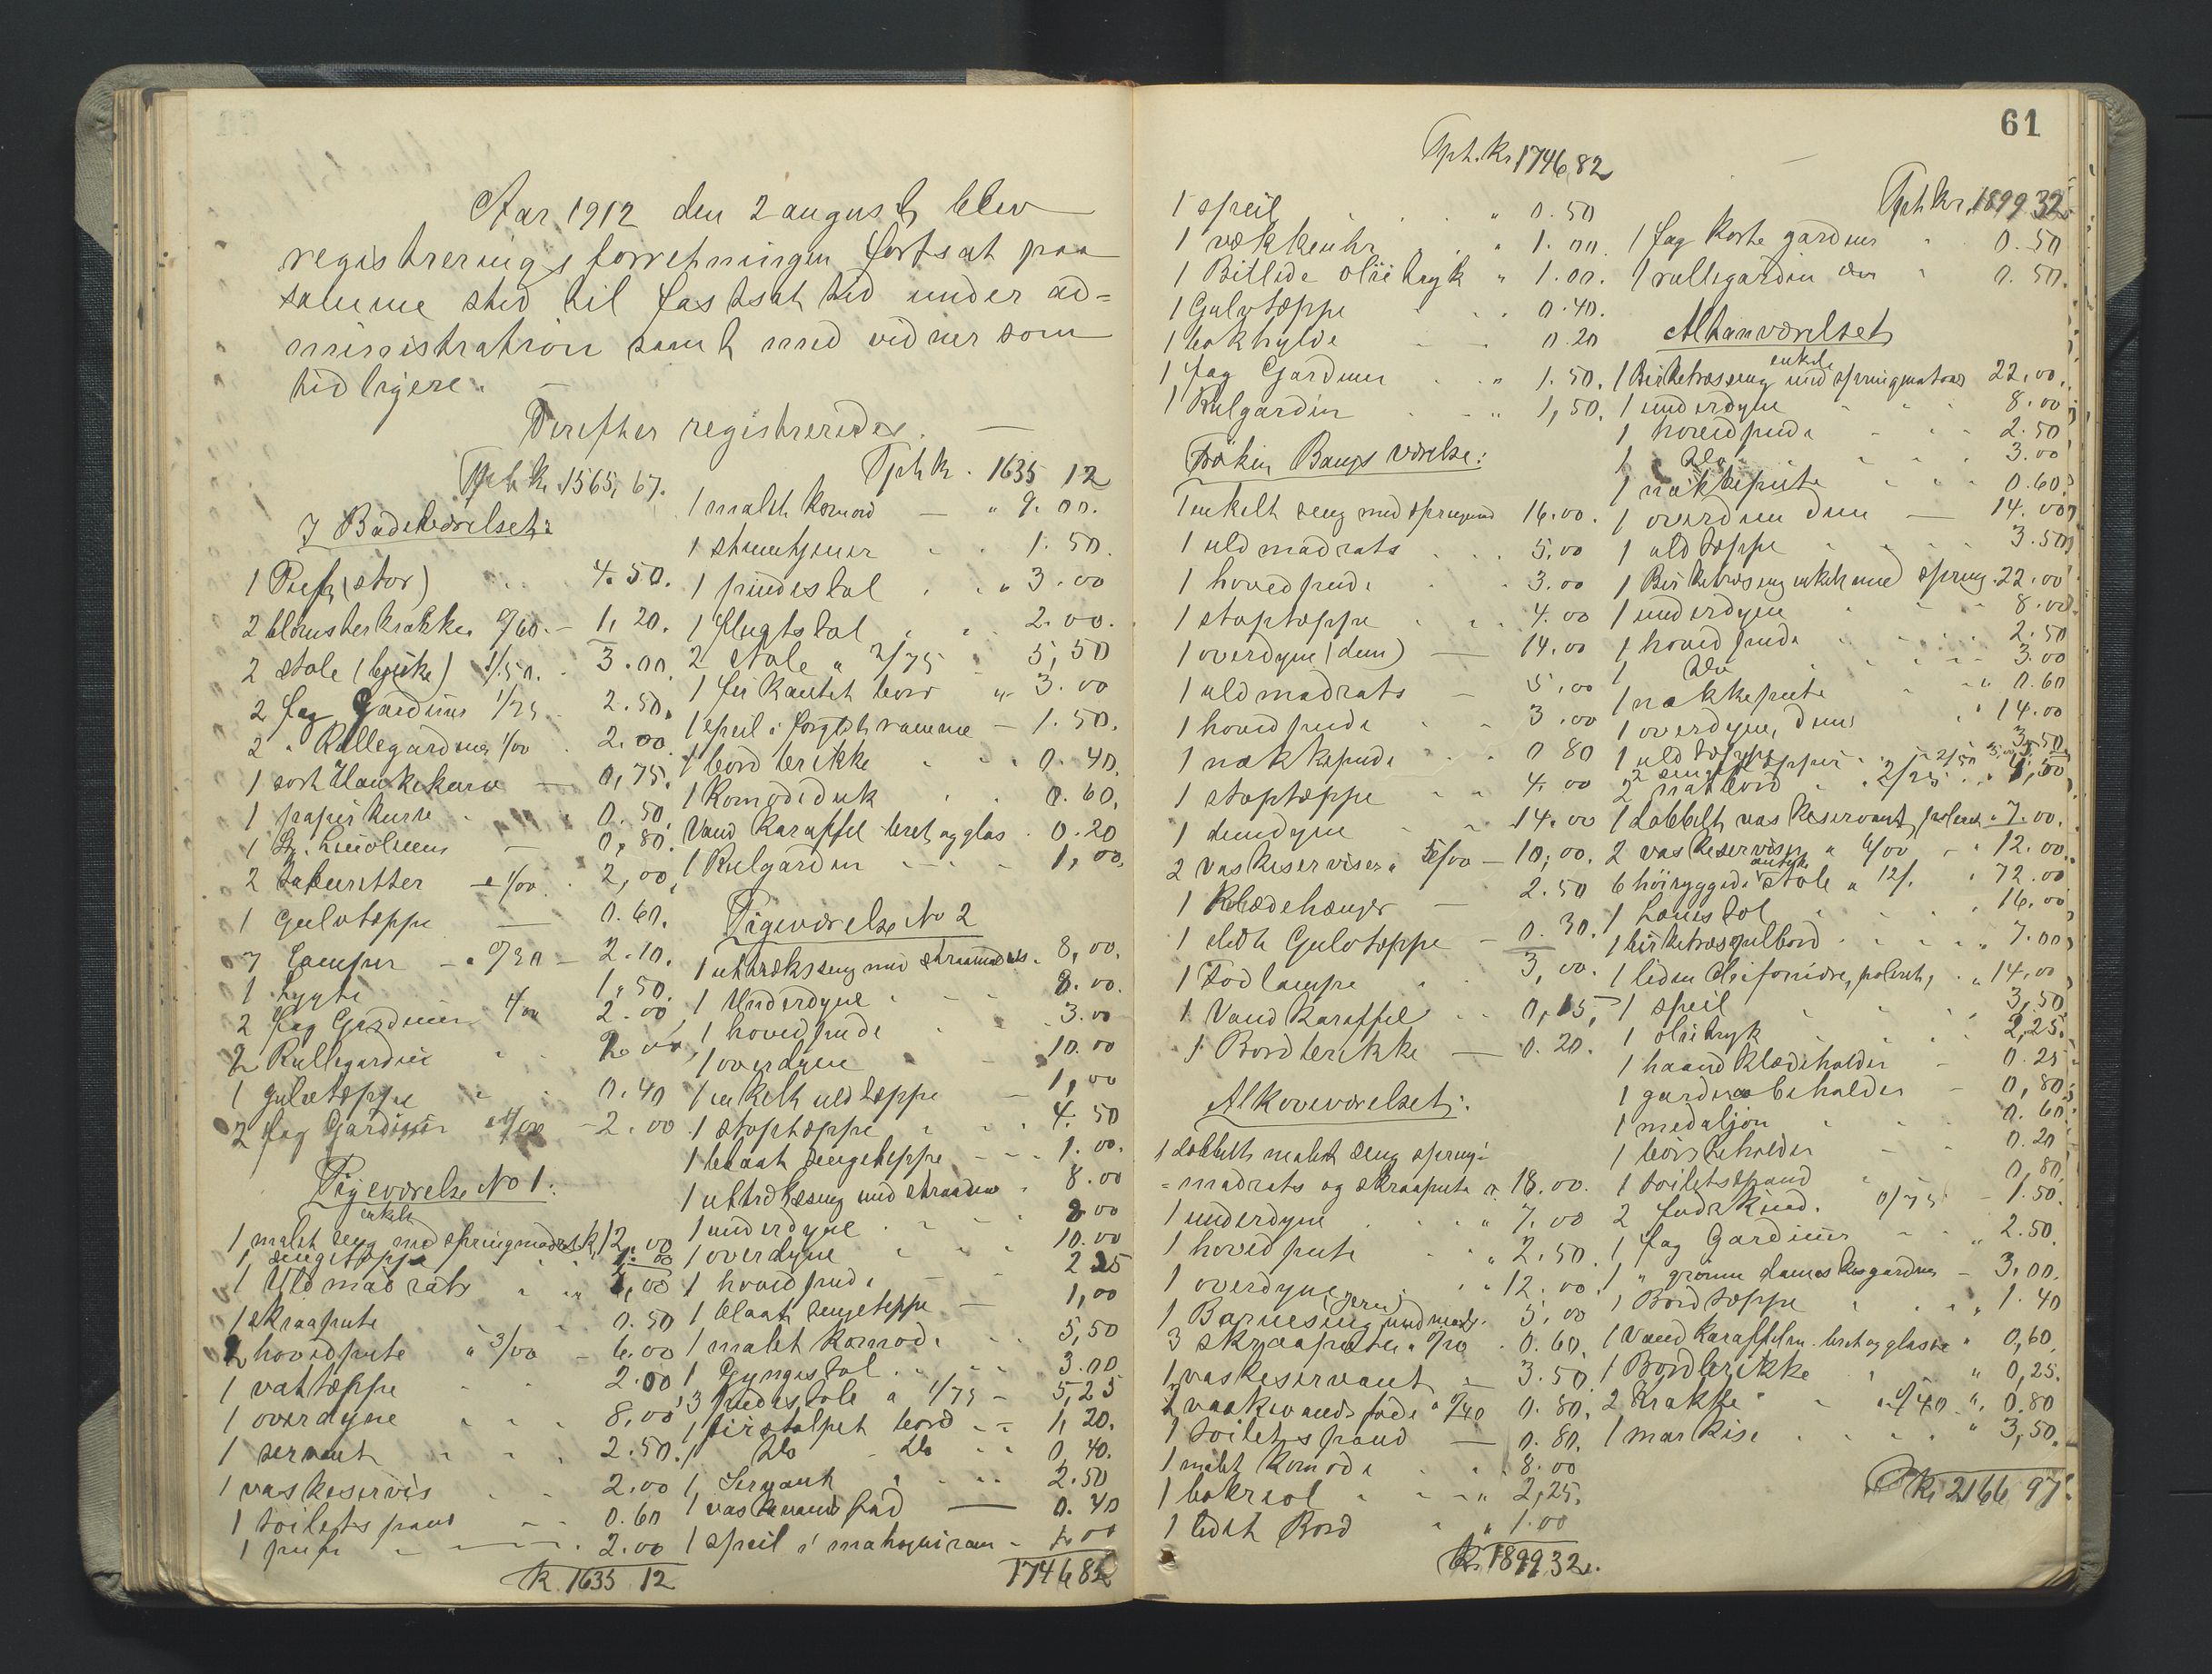 Aar 1912 den 2 august blev
registreringsforretningen fortsat paa
samme sted til fastsat tid under ad=
ministration samt med vidner som
tidligere. —
Derefter registreredes. —
Tph. kr. 1565,67.
I Badeværelset:
1 Puf (stor) 4.50.
2 blomsterkrakke 0/60. — 1,20.
2 stole (bjerke) 1/50. 3.00.
2 fag Gardiner 1/25 2.50.
2 " Rullegardiner 1/00 2.00.
1 sort Hankekurv — 0,75.
1 papirkurv 0.50.
1 St. Linoleum — 0,80.
2 taburetter a 1/00 2,00.
1 Gulvtæppe — 0.60.
7 Lamper — a 0/30 — 2.10.
1 Lygte 1,50.
2 fag Gardiner 1/00 2.00
2 Rullegardin 2.00
1 gulvtæppe 0.40
2 fag Gardiner a 1/00 — 2.00
Pigeværelse No 1.
enkelt
1 malet seng med springmadrats k. 12,00
1 sengetæppe 1.00
1 Uld madrats 2,00
1 skraapute 0.50
2 hovedpute a 3/00 — 6.00
1 vattæppe 2.00
1 overdyne 8,00
1 servant 2.50.
1 vaskeservis 2.00
1 toiletspand 0.60
1 2.00
Kr. 1635 12
Tph kr. 1635 12
1 malet komod — " 9.00.
1 stumtjener 1.50.
1 pindestol " 3.00
1 flugtstol 2.00.
2 stole a 2/75 5,50
1 firkantet bord " 3.00
1 speil i forgyldt ramme — 1.50.
1 bordbrikke 0.40.
1 Komodeduk 0.60.
Vand karaffel bret og glas . 0.20
1 Rulgardin 1,00.
Pigeværelse No 2
1 uttræksseng med straamadrats. 8,00.
1 Underdyne 8.00.
1 hovedpude 3.00
1 overdyne 10.00
1 enkelt uldtæppe — 1,00
1 stoptæppe 4.50
1 blaat sengeteppe 1.00.
1 uttræksseng med 8.00
1 underdyne 8.00
1 overdyne 10.00
1 hovedpude 2 25
1 blaat sengeteppe — 1,00
1 malet komode 5,50
1 Gyngestol 3.00
3 pindestole a 1/75 — 5,25
1 firstolpet bord 1,20.
1 Do Do 0,40.
1 Servant 2.50
1 vaskevandsfad — 0.40
1 speil i mahogniram 1.00
1746 82
61
Tph. kr. 1746,82
1 speil " 0.50
1 vækkeuhr " 1.00.
1 Billede olietryk " 1.00.
1 Gulvtæppe 0.40.
1 bokhylde 0.20
1 fag Gardiner " 1.50.
1 Rulgardin " 1,50.
Frøken Bangs værelse:
1 enkelt seng med 16.00.
1 uldmadrats 5,00
1 hovedpude 3.00
1 stoptæppe 4.00
1 overdyne (dun) — 14.00
1 uldmadrats — 5,00
1 hovedpude 3.00
1 nakkepude 0 80
1 stoptæppe 4.00
1 dundyne 14.00
2 vaskeserviser a 5/00 — 10,00.
1 Klædehænger — 2.50
1 slidt Gulvtæppe — 0.30.
1 Fodlampe 3,00.
1 Vand Karaffel 0,15,
1 Bordbrikke — 0.20.
Alkoveværelset:
1 dobbelt malet seng spring=
=madrats og skraaputa 18.00.
1 underdyne " 7.00
1 hovedpute " 2.50
1 overdyne 12.00
(jern)
1 Barneseng med madr. 5,00
3 skraaputer a 0/20 0.60.
1 vaskeservant — 3.50
2 vaskevandsfade a 0/40 0.80.
1 toiletspand — 0.80.
1 malet komode 8.00
1 bokreol " 2,25.
1 lidet Bord " 1.00
Kr. 1899,32.
Tph kr. 1899 32
1 fag korte gardiner 0.50
1 rullegardin 0.50.
Altanværelset
enkel
1 Birketræsseng med springmatras 22,00.
1 underdyne 8.00
1 hovedpude 2.50
1 Do 3.00
1 nakkepute 0.60
1 overdun dun — 14.00
1 uldtæppe 3.50
1 Birketræseng enkelt med spring. 22.00
1 underdyne 8.00
1 hovedpude 2.50
1 Do 3.00
1 nakkepute " 0.60
1 overdyne, dun 14.00
1 uldtæppe 3.50
2 sengetæpper a 2/50 5.00
2 natbord
1 dobbelt vaskeservant, poleret 7.00.
2 vaskeserviser a 6/00 " 12.00.
antike
6 høiryggede stole a 12/. 72.00
1 Lænestol 16,00
1 birketræs spilbord 7.00
1 liden chifoniere, poleret, " 14,00
1 speil 3,50
1 olietryk 2,25.
1 haandklædeholder 0.25
1 garderobeholder — 0,80
1 medaljon 0.60
1 børsteholder 0.20
1 toiletspand 0,80
2 faareskind. 0/75 — 1.50.
1 fag Gardiner " 2.50.
1 " grønne damaskesgardiner — 3,00.
1 Bordtæppe " 1.40
1 Vand karaffel m. bret og glas " 0,60
1 Bordbrikke " 0,25.
2 Krakke a 0/40 " 0.80
1 markise " 3,50.
Kr. 2166 97